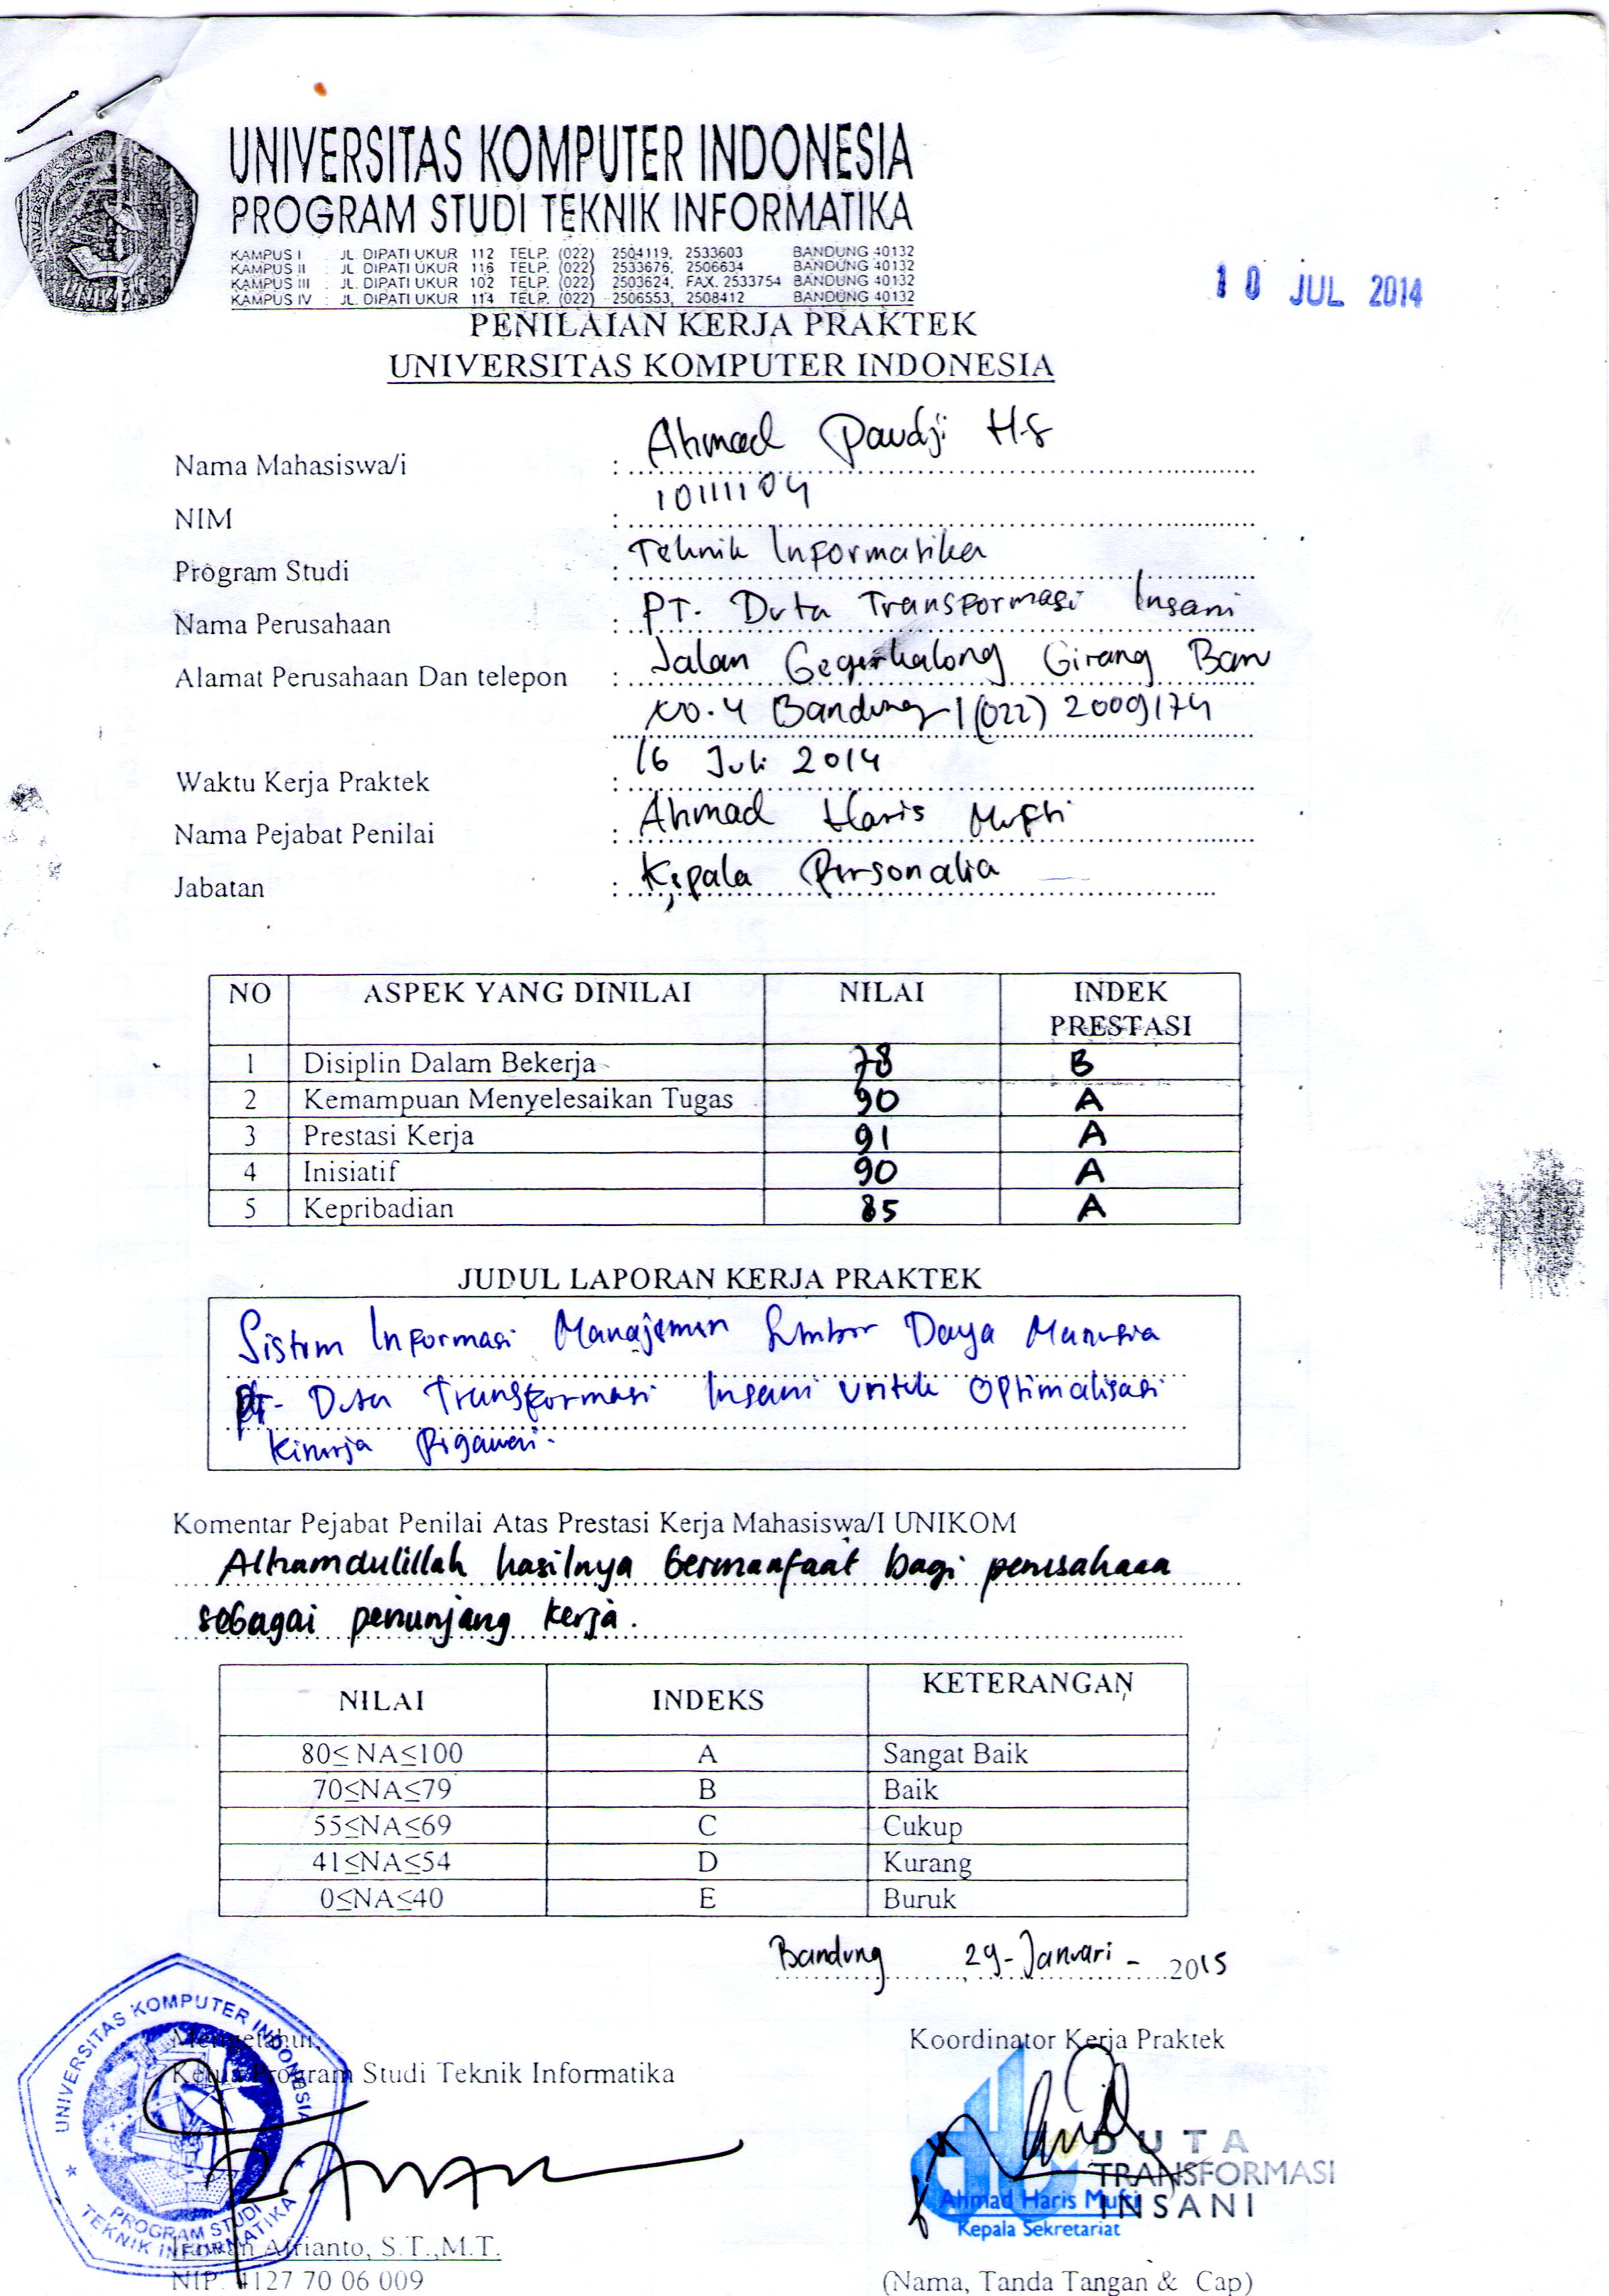 UNIVERSITAS KOMPUTER INDONESIA
PROGRAM STUDI TEKNIK INFORMATIKA
KAMPUS I : JL. DIPATI UKUR 112 TELP. (022) 2504119, 2533603 BANDUNG 40132
KAMPUS II : JL. DIPATI UKUR 116 TELP. (022) 2533676, 2506634 BANDUNG 40132
KAMPUS III : JL. DIPATI UKUR 102 TELP. (022) 2503624, FAX. 2533754 BANDUNG 40132
KAMPUS IV : JL. DIPATI UKUR 114 TELP. (022) 2506553, 2508412 BANDUNG 40132
10 JUL 2014
PENILAIAN KERJA PRAKTEK
UNIVERSITAS KOMPUTER INDONESIA
Nama Mahasiswa/i : Ahmad Paudji H.S
NIM : 10111104
Program Studi : Teknik Informatika
Nama Perusahaan : PT. Duta Transformasi Insani
Alamat Perusahaan Dan telepon : Jalan Gegerkalong Girang Baru
No.4 Bandung / (022) 2009174
Waktu Kerja Praktek : 16 Juli 2014
Nama Pejabat Penilai : Ahmad Haris Mufti
Jabatan : Kepala Personalia
NO ASPEK YANG DINILAI NILAI INDEK PRESTASI
1 Disiplin Dalam Bekerja 78 B
2 Kemampuan Menyelesaikan Tugas 90 A
3 Prestasi Kerja 91 A
4 Inisiatif 90 A
5 Kepribadian 85 A
JUDUL LAPORAN KERJA PRAKTEK
Sistem Informasi Manajemen Sumber Daya Manusia
PT. Duta Transformasi Insani untuk Optimalisasi
Kinerja Pegawai.
Komentar Pejabat Penilai Atas Prestasi Kerja Mahasiswa/I UNIKOM
Alhamdulillah hasilnya bermanfaat bagi perusahaan
sebagai penunjang kerja.
NILAI INDEKS KETERANGAN
80≤ NA≤100 A Sangat Baik
70≤NA≤79 B Baik
55≤NA≤69 C Cukup
41≤NA≤54 D Kurang
0≤NA≤40 E Buruk
Bandung, 29-Januari - 2015
Mengetahui,
Ketua Program Studi Teknik Informatika
UNIVERSITAS KOMPUTER INDONESIA
PROGRAM STUDI
TEKNIK INFORMATIKA
Irawan Afrianto, S.T.,M.T.
NIP. 4127 70 06 009
Koordinator Kerja Praktek
DUTA
TRANSFORMASI
INSANI
Ahmad Haris Mufti
Kepala Sekretariat
(Nama, Tanda Tangan & Cap)